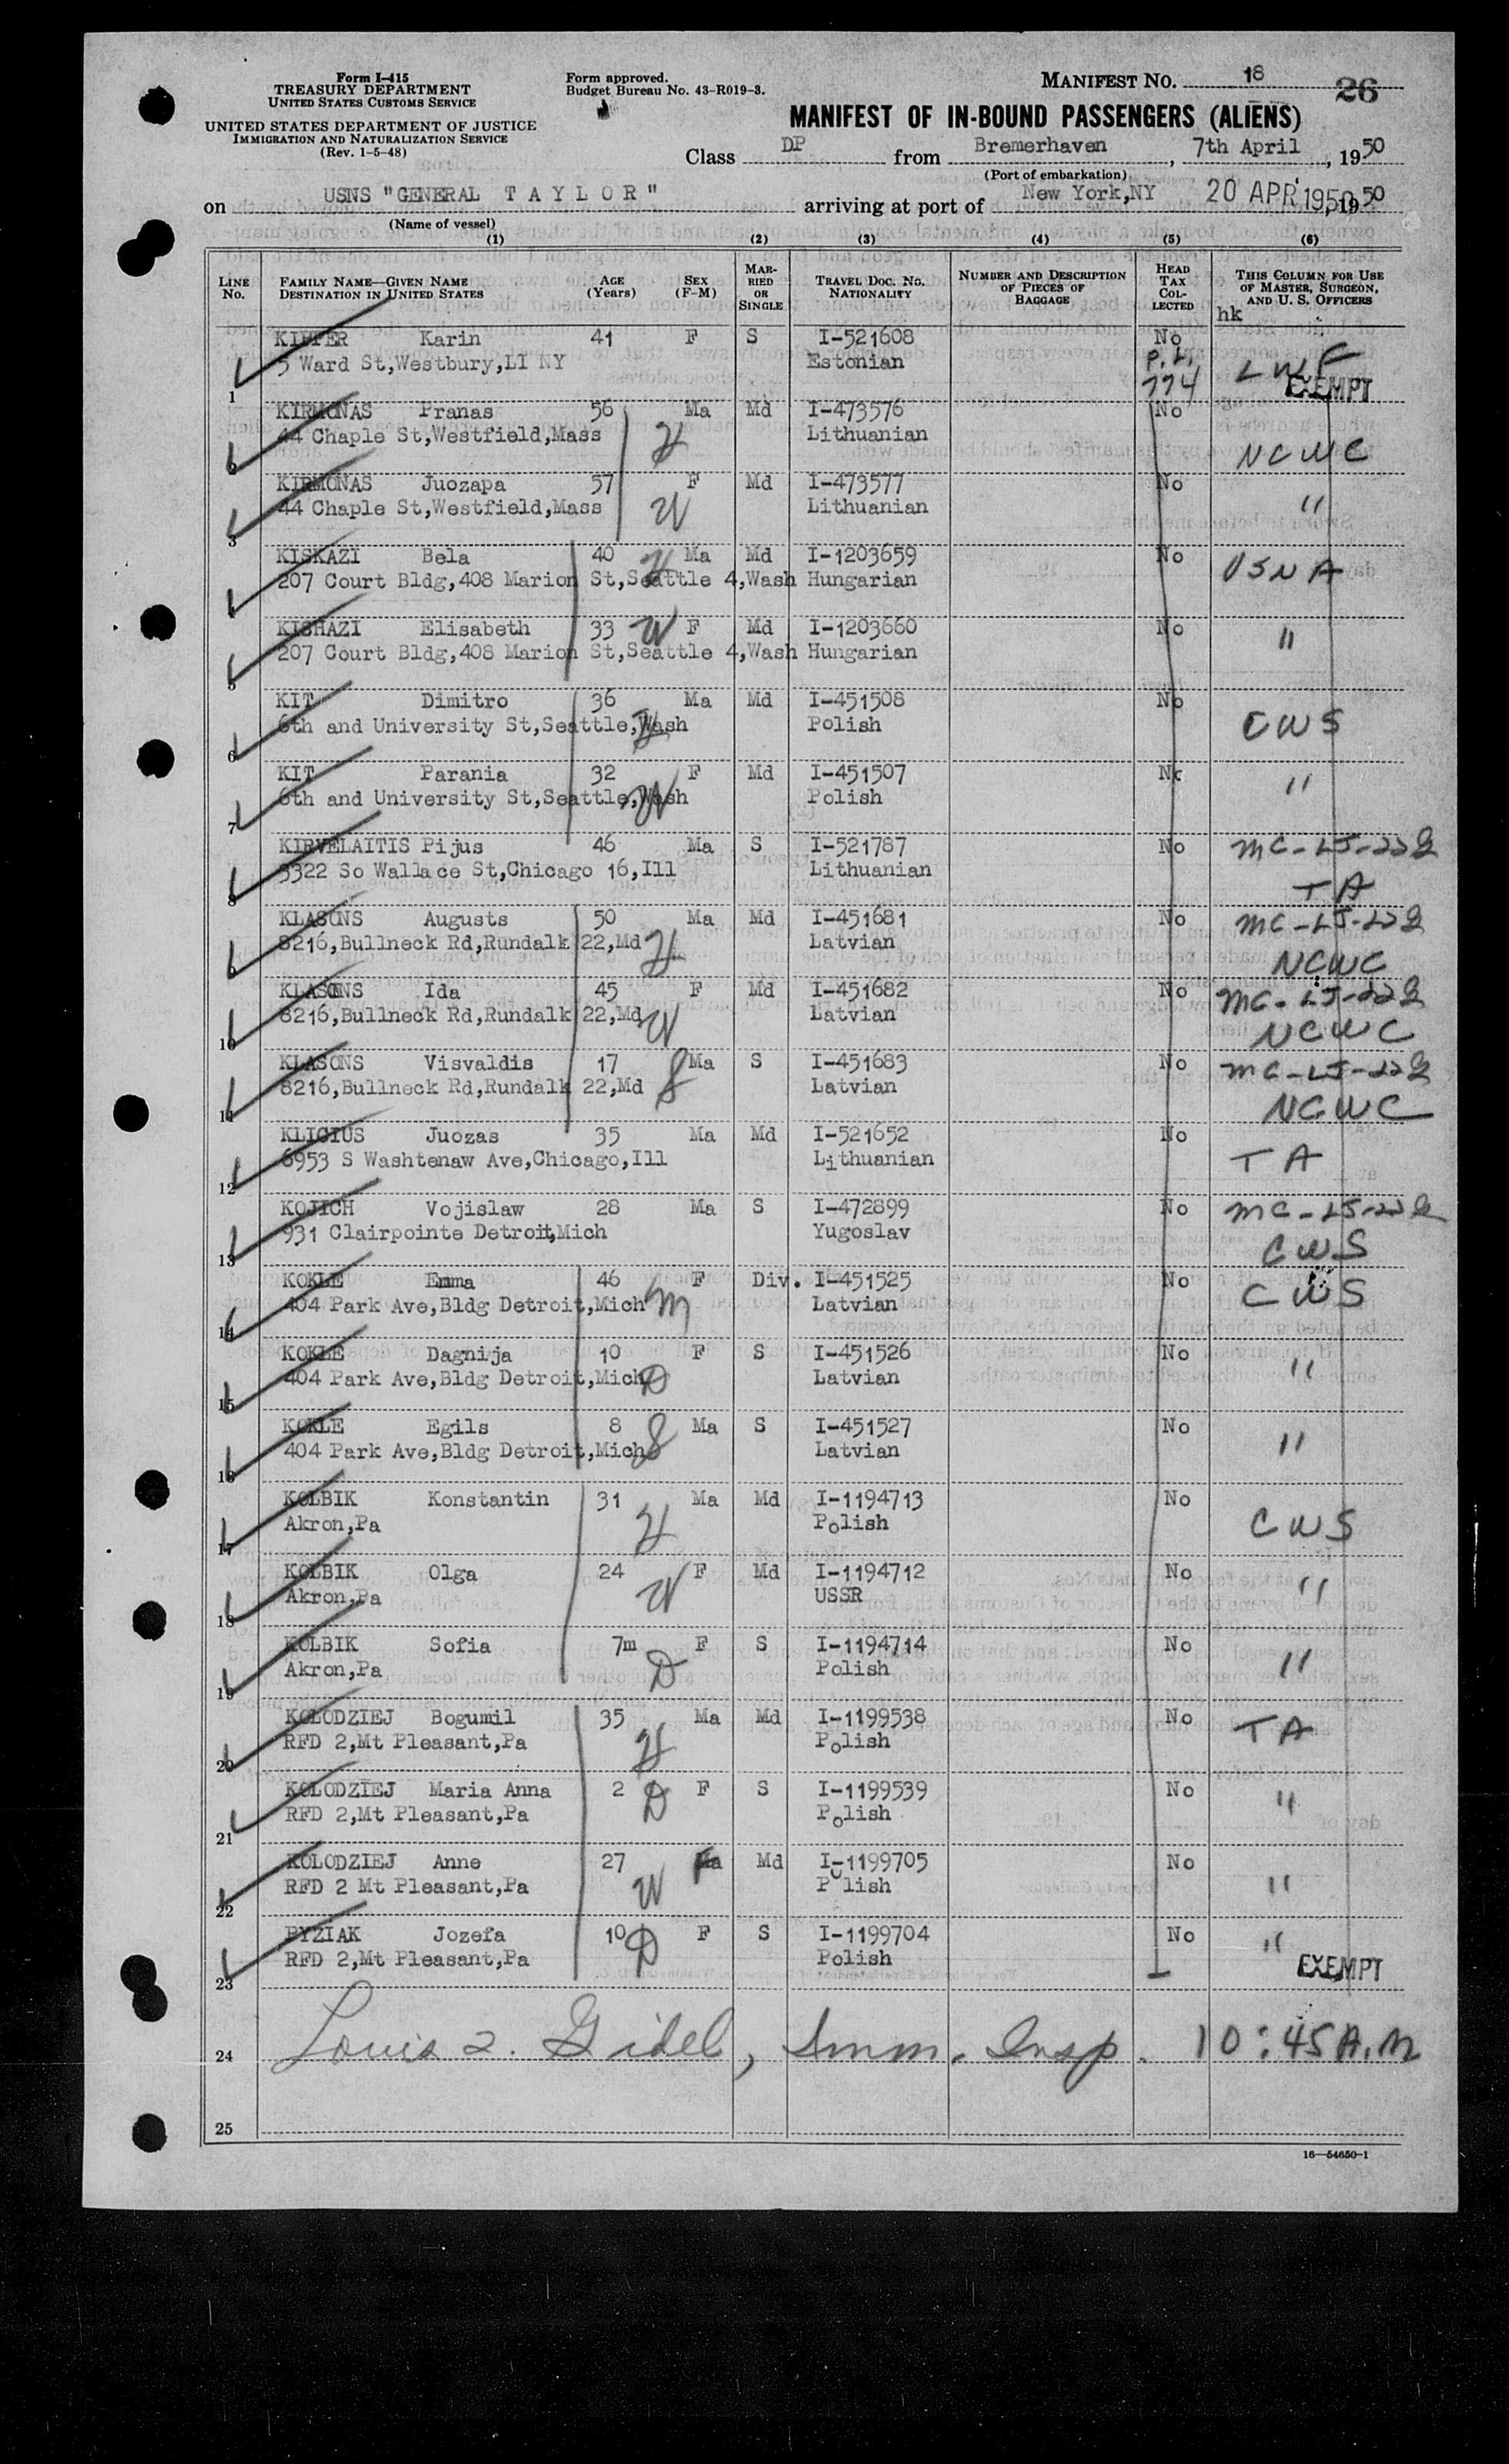 Form I-415
TREASURY DEPARTMENT
UNITED STATES CUSTOMS SERVICE
UNITED STATES DEPARTMENT OF JUSTICE
IMMIGRATION AND NATURALIZATION SERVICE
(Rev. 1-5-48)
Form approved.
Budget Bureau No. 43-R019-3.
MANIFEST NO. 18 26
MANIFEST OF IN-BOUND PASSENGERS (ALIENS)
Class DP from Bremerhaven, 7th April, 1950
(Port of embarkation)
on USNS "GENERAL T A Y L O R" arriving at port of New York,NY 20 APR 1950, 1950
(Name of vessel)
(1) (2) (3) (4) (5) (6)
LINE No. FAMILY NAME—GIVEN NAME DESTINATION IN UNITED STATES AGE (Years) SEX (F-M) MARRIED OR SINGLE TRAVEL DOC. NO. NATIONALITY NUMBER AND DESCRIPTION OF PIECES OF BAGGAGE HEAD TAX COLLECTED THIS COLUMN FOR USE OF MASTER, SURGEON, AND U. S. OFFICERS
hk
Karin 41 F S I-521608 No
5 Ward St,Westbury,LI NY Estonian P.L. 774 LWF EXEMPT
1
KIRMONAS Pranas 56 Ma Md I-473576 No
44 Chaple St,Westfield,Mass H Lithuanian NCWC
2
KIRMONAS Juozapa 57 F Md I-473577 No
44 Chaple St,Westfield,Mass W Lithuanian "
3
KISHAZI Bela 40 H Ma Md I-1203659 No
207 Court Bldg,408 Marion St,Seattle 4,Wash Hungarian USNA
4
KISHAZI Elisabeth 33 W F Md I-1203660 No
207 Court Bldg,408 Marion St,Seattle 4,Wash Hungarian "
5
KIT Dimitro 36 Ma Md I-451508 No
6th and University St,Seattle,Wash H Polish CWS
6
KIT Parania 32 F Md I-451507 No
6th and University St,Seattle,Wash W Polish "
7
KIRVELAITIS Pijus 46 Ma S I-521787 No
3322 So Wallace St,Chicago 16,Ill Lithuanian
TA
8
KLASONS Augusts 50 Ma Md I-451681 No
8216,Bullneck Rd,Rundalk 22,Md H Latvian
NCWC
9
KLASONS Ida 45 F Md I-451682 No
8216,Bullneck Rd,Rundalk 22,Md W Latvian
NCWC
10
KLASONS Visvaldis 17 S Ma S I-451683 No
8216,Bullneck Rd,Rundalk 22,Md Latvian
NCWC
11
KLICIUS Juozas 35 Ma Md I-521652 No
6953 S Washtenaw Ave,Chicago,Ill Lithuanian TA
12
KOJICH Vojislaw 28 Ma S I-472899 No
931 Clairpointe Detroit,Mich Yugoslav
CWS
13
KOKLE Emma 46 F Div. I-451525 No
404 Park Ave,Bldg Detroit,Mich M Latvian CWS
14
KOKLE Dagnija 10 F S I-451526 No
404 Park Ave,Bldg Detroit,Mich D Latvian "
15
KOKLE Egils 8 Ma S I-451527 No
404 Park Ave,Bldg Detroit,Mich S Latvian "
16
KOLBIK Konstantin 31 Ma Md I-1194713 No
Akron,Pa H Polish CWS
17
KOLBIK Olga 24 F Md I-1194712 No
Akron,Pa W USSR "
18
KOLBIK Sofia 7m F S I-1194714 No
Akron,Pa D Polish "
19
KOLODZIEJ Bogumil 35 Ma Md I-1199538 No
RFD 2,Mt Pleasant,Pa H Polish TA
20
KOLODZIEJ Maria Anna 2 D F S I-1199539 No
RFD 2,Mt Pleasant,Pa Polish "
21
KOLODZIEJ Anne 27 F Md I-1199705 No
RFD 2 Mt Pleasant,Pa W Polish "
22
Jozefa 10 D F S I-1199704 No
RFD 2,Mt Pleasant,Pa Polish " EXEMPT
23
24 Louis 2. Gidel, Imm. Insp. 10:45 A.M
25
16—54650-1